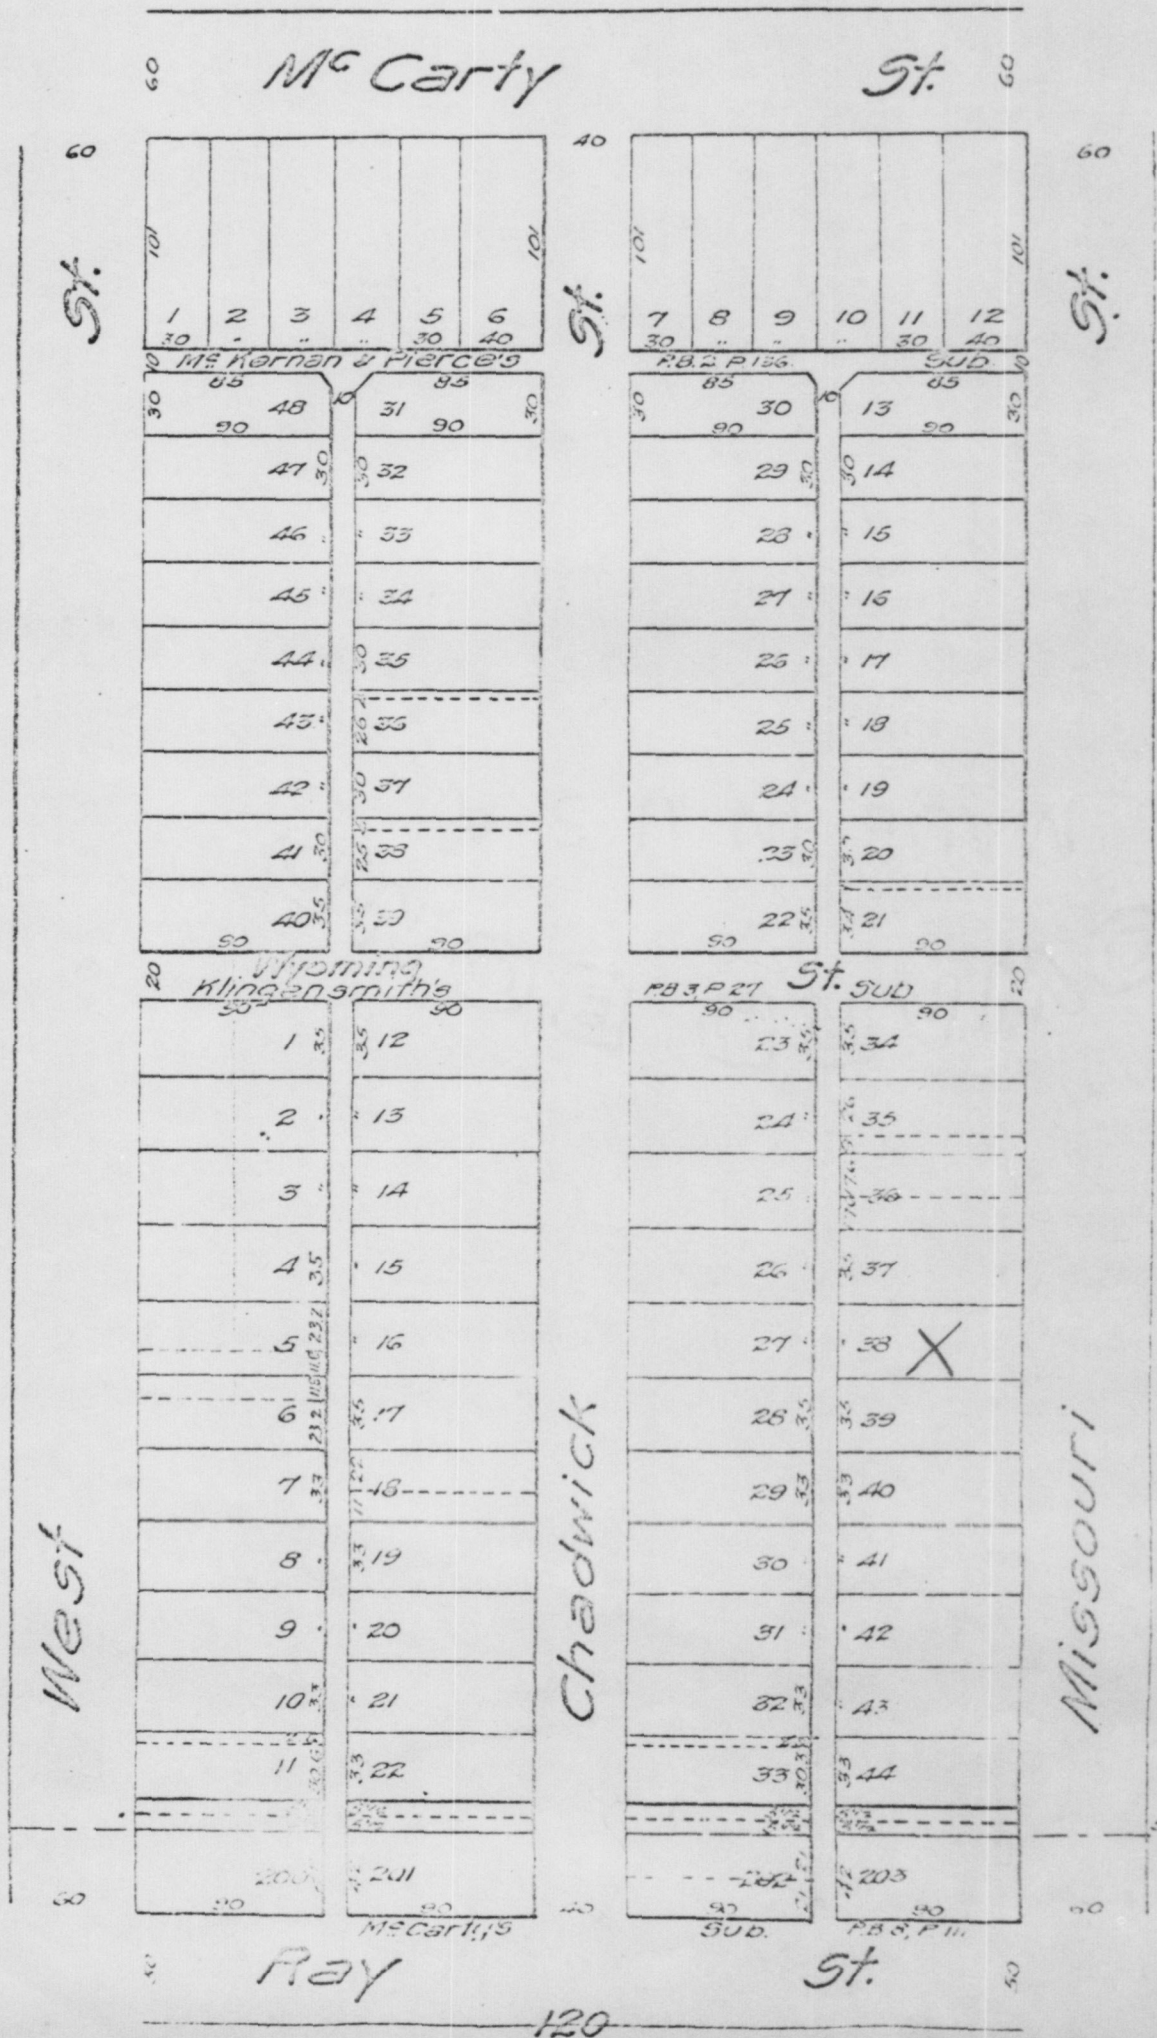 60 Mc Carty St. 60
60 40 60
101 101 101 101
St. St. St.
1 2 3 4 5 6 7 8 9 10 11 12
30 " " " 30 40 30 " " " 30 40
10 Mc Kernan & Pierce's P.B. 2, P 136 Sub. 10
85 85 85 85
30 48 10 31 30 30 30 10 13 30
90 90 90 90
47 30 30 32 29 30 30 14
46 " " 33 28 " " 15
45 " " 34 27 " " 16
44 " 30 35 26 " " 17
43 " 26 36 25 " " 18
42 " 30 37 24 " " 19
41 30 25 38 23 30 35 20
40 35 35 39 22 35 34 21
90 90 90 90
20 Wyoming St. 20
Klingensmith's P.B 3, P 27 Sub
90 90 90 90
1 35 35 12 23 35 35 34
2 " " 13 24 " 26 35
3 " " 14 25 36
4 35 " 15 26 " 35 37
5 23.2 " 16 27 " " 38 X
6 23.2 35 17 28 35 35 39
7 33 11 22 18 29 33 33 40
8 " 33 19 30 " " 41
9 " " 20 31 " " 42
10 33 " 21 32 33 " 43
11 33 22 33 30 3 33 44
West Chadwick Missouri
200 42 201 202 21 21 42 203
60 90 90 40 90 90 60
McCarty's Sub. P.B 8, P 111
50 Ray St. 50
120